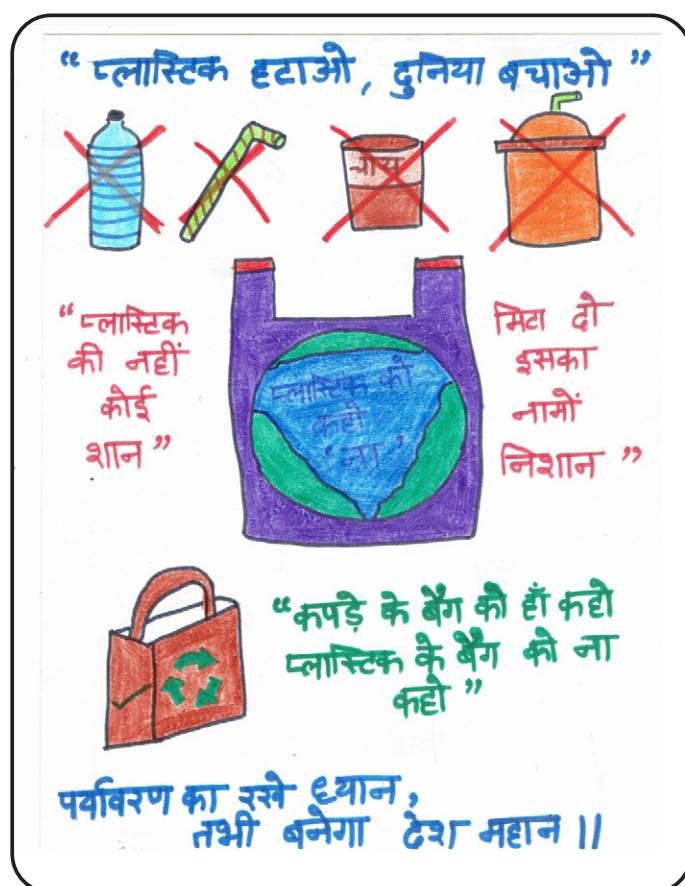 “ प्लास्टिक हटाओ, दुनिया बचाओ ”
चाय
“प्लास्टिक
की नहीं
कोई
शान”
प्लास्टिक को
कहो
‘ना’
मिटा दो
इसका
नामों
निशान”
“कपड़े के बैग को हाँ कहो
प्लास्टिक के बैग को ना
कहो”
पर्यावरण का रखे ध्यान,
तभी बनेगा देश महान॥